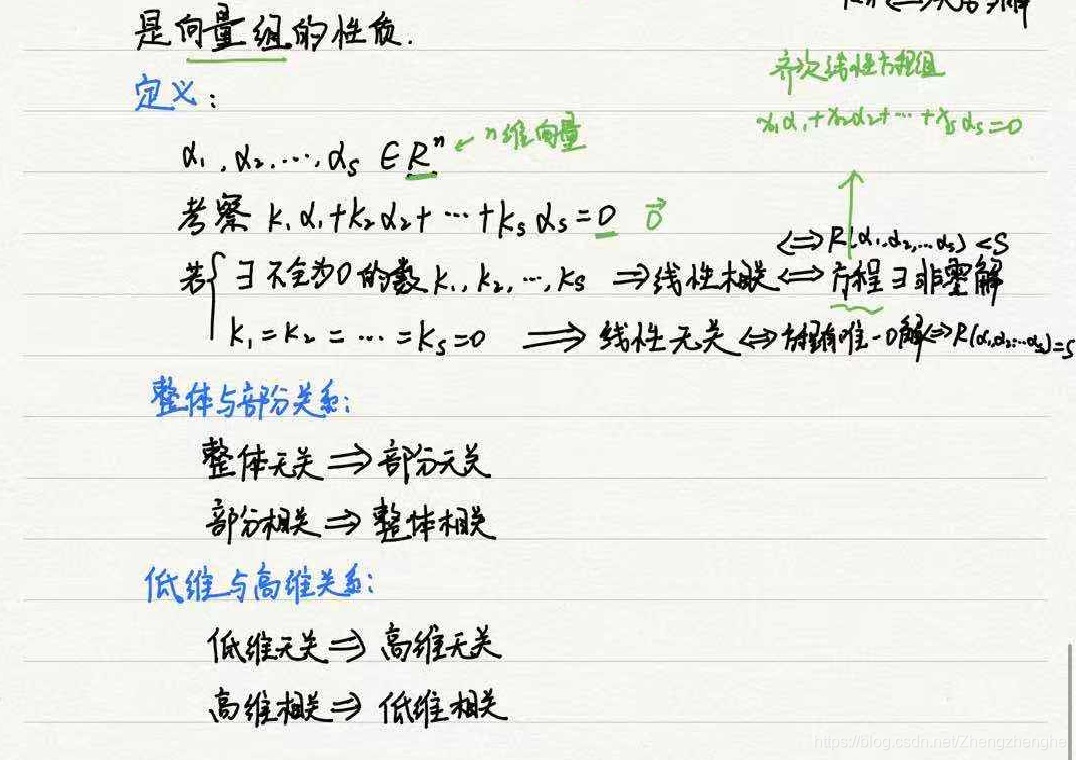 是向量组的性质.
齐次线性方程组
x₁α₁+x₂α₂+…+xₛαₛ=0
定义:
α₁,α₂,…,αₛ ∈Rⁿ ← n维向量
考察 k₁α₁+k₂α₂+…+kₛαₛ=0 0⃗
⟺R(α₁,α₂,…αₛ)<S
若{ ∃不全为0的数k₁,k₂,…,kₛ ⟹线性相关⟺方程∃非零解
k₁=k₂=…=kₛ=0 ⟹ 线性无关⟺方程有唯一0解⟺R(α₁,α₂…αₛ)=S
整体与部分关系:
整体无关⟹部分无关
部分相关⟹整体相关
低维与高维关系:
低维无关⟹高维无关
高维相关⟹低维相关
https://blog.csdn.net/Zhengzhenghe